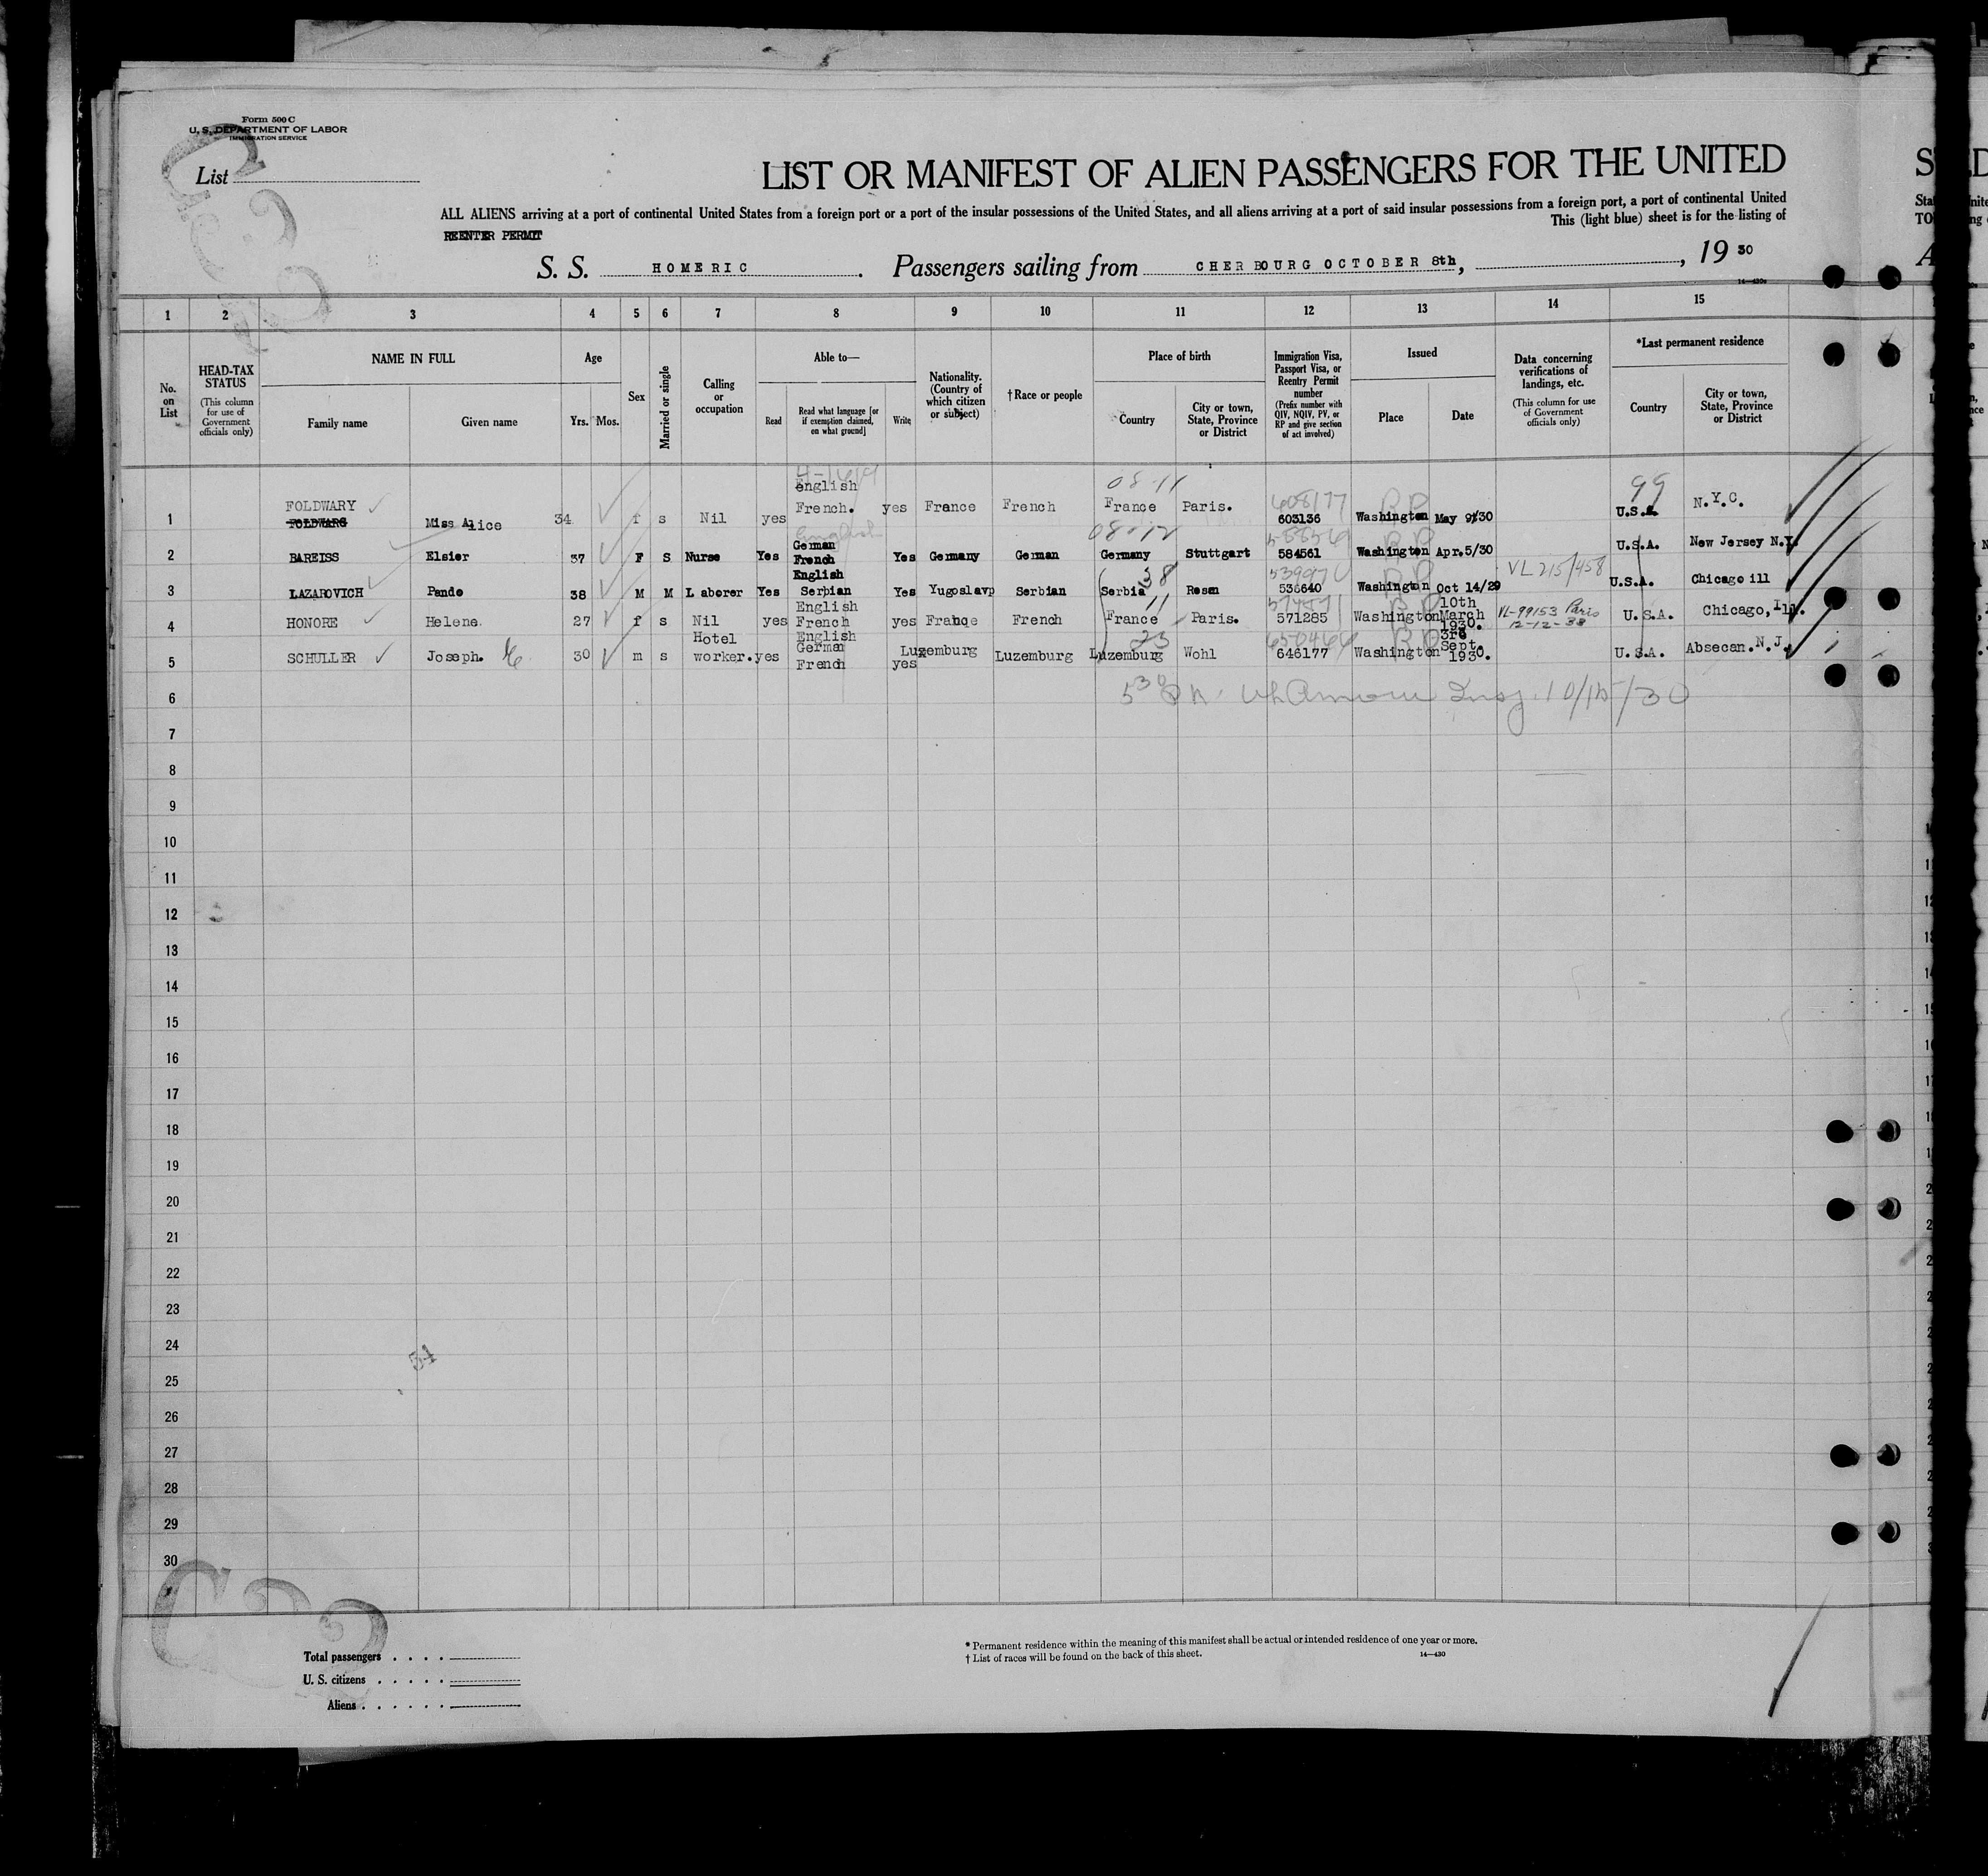 Form 500 C
U. S. DEPARTMENT OF LABOR
IMMIGRATION SERVICE
List
LIST OR MANIFEST OF ALIEN PASSENGERS FOR THE UNITED
ALL ALIENS arriving at a port of continental United States from a foreign port or a port of the insular possessions of the United States, and all aliens arriving at a port of said insular possessions from a foreign port, a port of continental United
This (light blue) sheet is for the listing of
REENTER PERMIT
S. S. HOMERIC. Passengers sailing from CHERBOURG OCTOBER 8th, , 19 30
1 2 3 4 5 6 7 8 9 10 11 12 13 14 15
No. on List
HEAD-TAX STATUS (This column for use of Government officials only)
NAME IN FULL Family name Given name
Age Yrs. Mos.
Sex
Married or single
Calling or occupation
Able to— Read Read what language [or if exemption claimed, on what ground] Write
Nationality. (Country of which citizen or subject)
†Race or people
Place of birth Country City or town, State, Province or District
Immigration Visa, Passport Visa, or Reentry Permit number (Prefix number with QIV, NQIV, PV, or RP and give section of act involved)
Issued Place Date
Data concerning verifications of landings, etc. (This column for use of Government officials only)
*Last permanent residence Country City or town, State, Province or District
1 FOLDWARY Miss Alice 34 f s Nil yes english French. yes France French 08-11 France Paris. 608177 603136 Washington May 9/30 99 U.S.A. N.Y.C.
2 BAREISS Elsier 37 F S Nurse Yes English German French Yes Germany German 08-12 Germany Stuttgart 584561 Washington Apr.5/30 U.S.A. New Jersey N.Y.
3 LAZAROVICH Pando 38 M M Laborer Yes English Serbian Yes Yugoslavp Serbian 38 Serbia Resen 536640 Washington Oct 14/29 VL 215/458 U.S.A. Chicago ill
4 HONORE Helene 27 f s Nil yes English French yes France French 11 France Paris. 571285 Washington 10th March 1930. VL-99153 Paris 12-12-38 U.S.A. Chicago, Ill.
5 SCHULLER Joseph. 30 m s Hotel worker. yes English German French yes Luxemburg Luzemburg 23 Luzemburg Wohl 650466 646177 Washington 3rd Sept. 1930. U.S.A. Absecan. N.J.
6 10/15/30
7
8
9
10
11
12
13
14
15
16
17
18
19
20
21
22
23
24
54
25
26
27
28
29
30
Total passengers
U. S. citizens
Aliens
* Permanent residence within the meaning of this manifest shall be actual or intended residence of one year or more.
† List of races will be found on the back of this sheet.
14—430